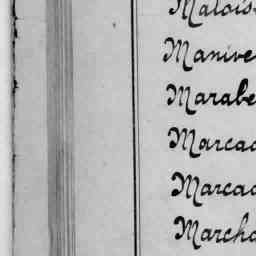 Malois
Manive
Marabe
Marcad
Marcad
Marcha